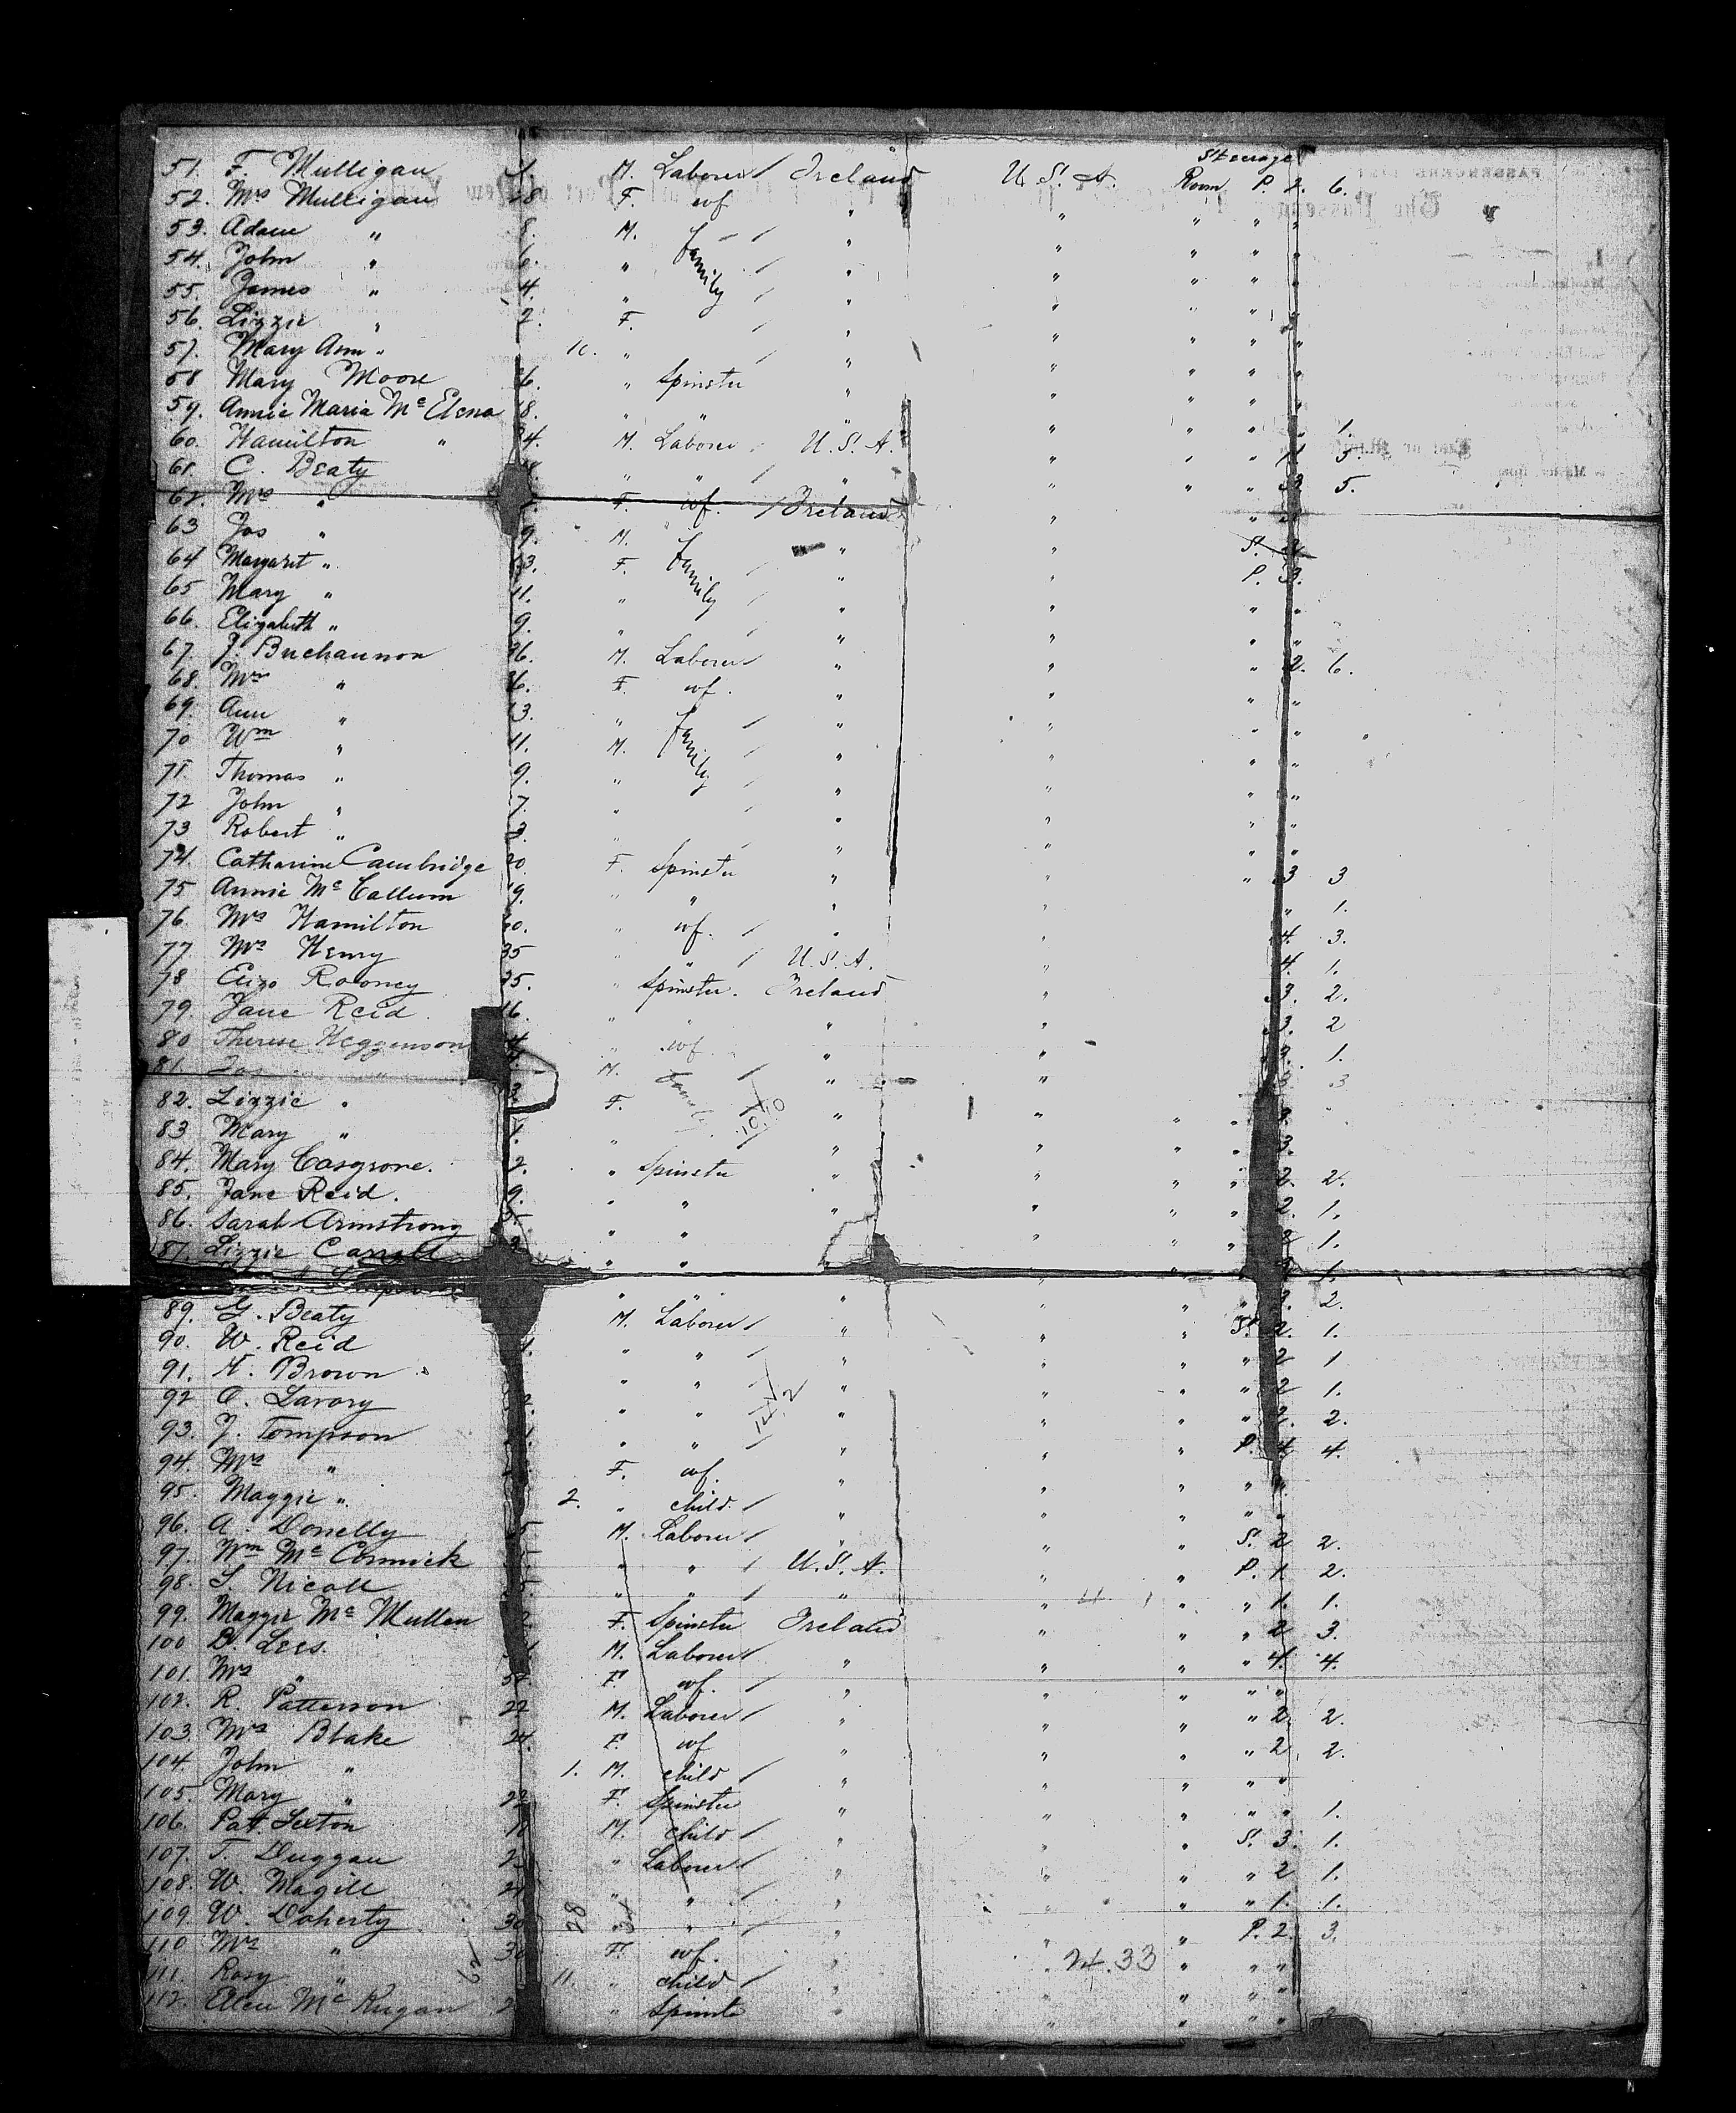 Steerage
51. F. Mulligan M. Laborer Ireland U.S.A. Room P. 2. 6.
52. Mrs Mulligan 28 F. wf " " " " "
53. Adam " 8. M. family " " " " "
54. John " 6. " " " " " "
55. James " 4. " " " " " "
56. Lizzie " 2. F. " " " " "
57. Mary Ann " 10. " " " " " "
58 Mary Moore 26. " Spinster " " " " "
59. Annie Maria Mc 18. " " " " " " " 1.
60. Hamilton " 24. M. Laborer U.S.A. " " " 3.
61. C. Beaty " " " " " " 3 5.
62. Mrs " F. wf. Ireland " "
63 Jos " 9. M. family " " S. 2
64 Margaret " 13. F. " " P. 3.
65 Mary " 11. " " " " "
66. Elizabeth " 9. " " " " "
67. J. Buchannon 36. M. Laborer " " " 2. 6.
68. Mrs " 36. F. wf. " " " "
69. Ann " 13. " family " " " "
70 Wm " 11. M. " " " "
71. Thomas " 9. " " " " "
72 John " 7. " " " " "
73 Robert " 3. " " " " "
74 Catharine Cambridge 20. F. Spinster " " " 3 3
75 Annie Mc Callum 19. " " " " " 1.
76. Mrs Hamilton 60. " wf. " " 4. 3.
77 Mrs Henry 35 " " U.S.A. " 4. 1.
78 Eliza Rooney 25. " Spinster. Ireland " 3. 2.
79 Jane Reid. 16. " " " " 3. 2
80 Therese Heggenson " wf. " " 1.
81 Jos " M. Family " " 3
82. Lizzie " F. 10.10 " " " "
83 Mary " " " " " " 3.
84. Mary Casgrone. 2. " Spinster " " " " 2. 2.
85. Jane Reid. 9. " " " " " " 2. 1.
86. Sarah Armstrong 5. " " " " " " 2 1.
87. Lizzie " " " " " 1.
" " " " " " 2.
89. G. Beaty M. Laborer " " " S. 2. 1.
90. W. Reid 1. " " " " " " 2 1
91. H. Brown " " " " " " 2 1.
92 O. Lavory 2. " " 14.2 " " " " 2. 2.
93. J. Tompson 1. " " " " " P. 4 4.
94. Mrs " F. wf. " " " " "
95. Maggie " 2. " child. " " " " "
96. A. Donelly 5 M. Laborer " " " S. 2 2.
97. Wm Mc Cormick " " U.S.A. " " P. 1. 2.
98. S. Nicoll 5. " " " " " " 1. 1.
99. Maggie Mc Mullen 2 F. Spinster Ireland " " " 2 3.
100 D. Lees. M. Laborer " " " " 4. 4.
101. Mrs " F. wf. " " " " "
102. R. Patterson 22 M. Laborer " " " " 2 2.
103. Mrs Blake 24. F. wf " " " " 2. 2.
104. John " 1. M. child " " " " "
105. Mary " 22 F. Spinster " " " " " 1.
106. Pat. Sexton M. child " " " S. 3. 1.
107. T. Duggan 2 " Laborer " " " " 2 1.
108. W. Magill 2 " " " " " " 1. 1.
109. W. Doherty 30 28 " " " " " P. 2. 3.
110 Mrs " 30 F. wf. " " 24.33 " " "
111. Rosy " 11. " child " " " " "
112. Ellen Mc 2 " Spinste " " " " "